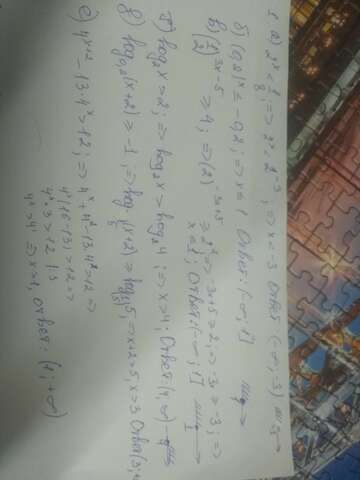 1 а) 2ˣ < 1/8; => 2ˣ < 2⁻³; => x < -3 Ответ (-∞; -3)
б) (0,2)ˣ ≤ -0,2; => x ≤ 1 Ответ: (-∞; 1]
в) (1/2)^3x-5 ≥ 4; => (2)^-3x+5 ≥ 2²; => -3x+5 ≥ 2; => -3x ≥ -3; =>
x ≤ 1; Ответ: (-∞; 1]
log₂ x > 2; => log₂ x > log₂ 4; => x > 4; Ответ: (4; ∞)
log₀,₂ (x+2) ≥ -1; => (x+2) ≥ 5; => x+2 > 5, x > 3 Ответ (3;
е) 4ˣ⁺² - 13·4ˣ > 12; => 4ˣ + 4² - 13·4ˣ > 12 =>
4ˣ(16-13) > 12 =>
4ˣ·3 > 12 | :3
4ˣ > 4 => x > 1, Ответ: (1; +∞)